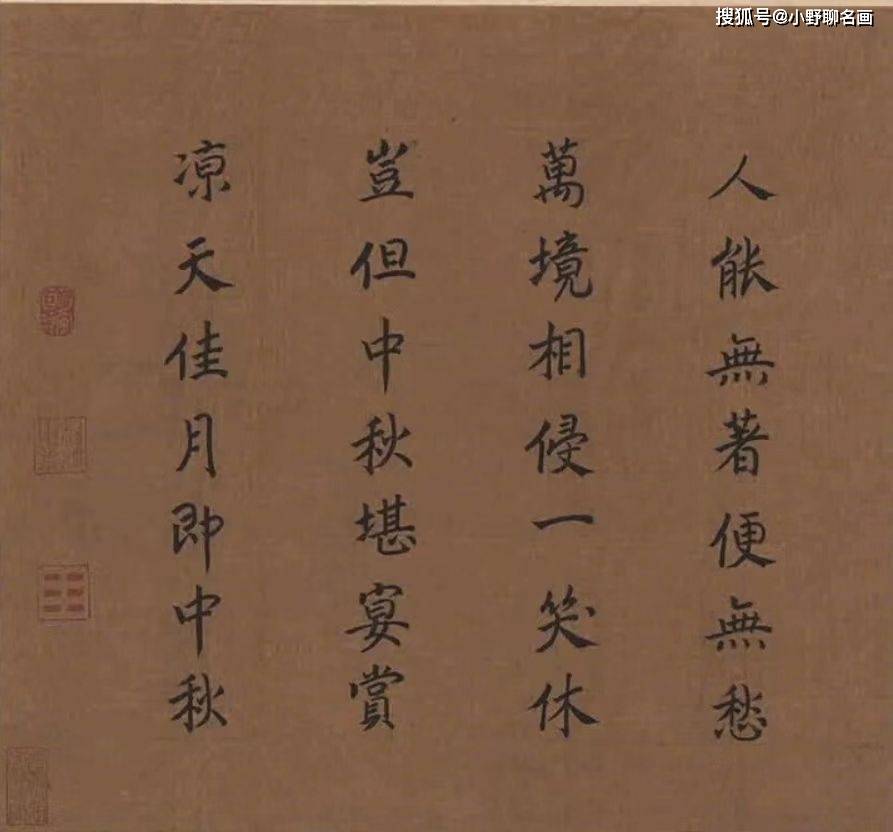 搜狐号@小野聊名画
人能無著便無愁
萬境相侵一笑休
豈但中秋堪宴賞
凉天佳月即中秋